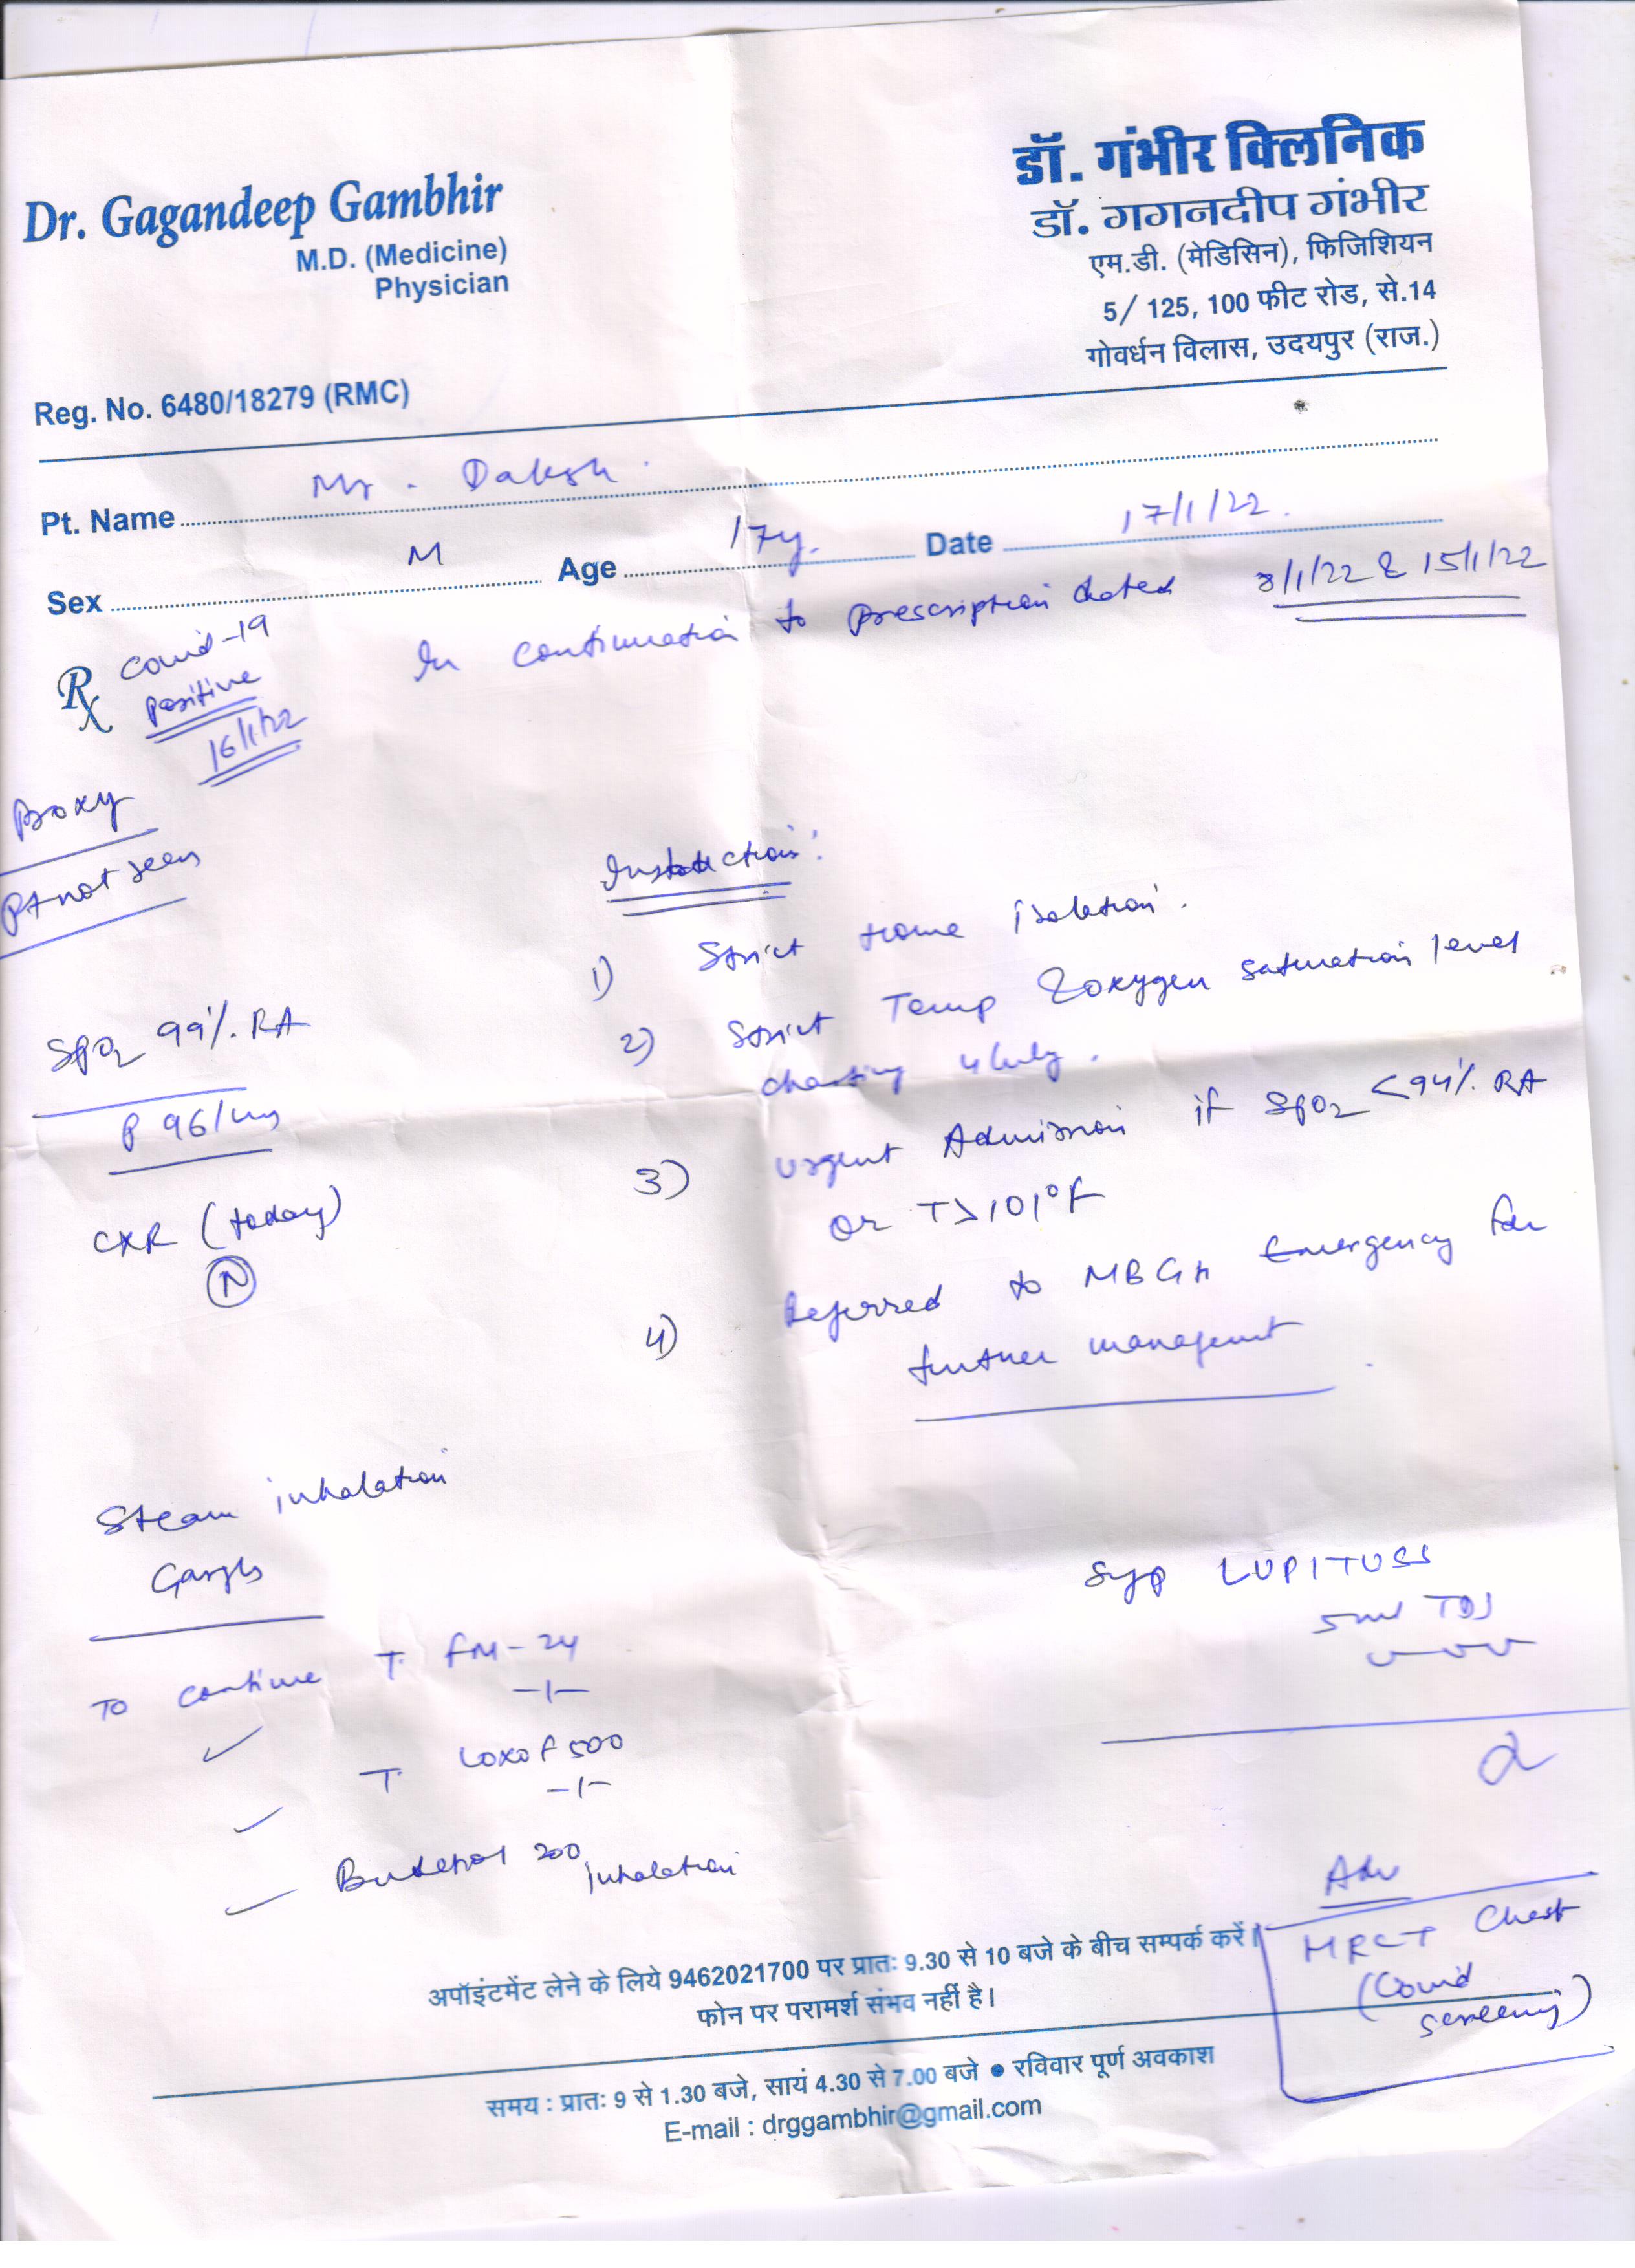 Dr. Gagandeep Gambhir
M.D. (Medicine)
Physician
Reg. No. 6480/18279 (RMC)
डॉ. गंभीर क्लिनिक
डॉ. गगनदीप गंभीर
एम.डी. (मेडिसिन), फिजिशियन
5/ 125, 100 फीट रोड, से.14
गोवर्धन विलास, उदयपुर (राज.)
Pt. Name Mr. Daksh.
Sex M Age 17y. Date 17/1/22.
In continuation to prescription dated 8/1/22 & 15/1/22
Rx Covid-19
Positive
16/1/22
Proxy
Pt not seen
SpO2 99%. RA
P 96/
CXR (today)
N
Instruction:
1) Strict Home isolation.
2) Strict Temp & oxygen saturation level
charting 4hrly.
3) Urgent Admission if SpO2 <94%. RA
or T>101°F
4) Referred to MBGH Emergency for
further managemt
Steam inhalation
Gargls
To continue T. FM-24
-1-
T. Loxof 500
-1-
Budetrol 200 inhalation
Syp LUPITUSS
5ml TDS
Adv
HRCT Chest
(Covid
screening)
अपॉइंटमेंट लेने के लिये 9462021700 पर प्रातः 9.30 से 10 बजे के बीच सम्पर्क करें।
फोन पर परामर्श संभव नहीं है।
समय : प्रातः 9 से 1.30 बजे, सायं 4.30 से 7.00 बजे ● रविवार पूर्ण अवकाश
E-mail : drggambhir@gmail.com